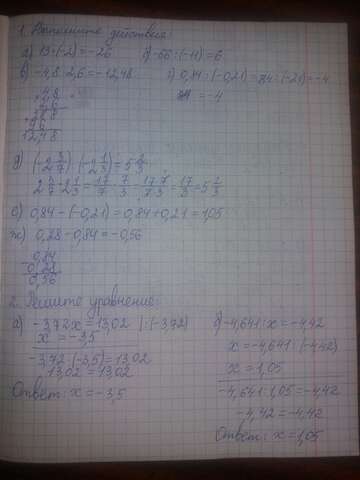 1. Выполните действия:
а) 13·(-2)=-26 б) -66:(-11)=6
в) -4,8·2,6=-12,48 г) 0,84:(-0,21)=84:(-21)=-4
4,8 =-4
2,6
288
96
12,48
д) (-2 3/7)·(-2 1/3)=5 2/3
2 3/7·2 1/3=17/7·7/3=17·7/7·3=17/3=5 2/3
е) 0,84-(-0,21)=0,84+0,21=1,05
ж) 0,28-0,84=-0,56
0,84
0,28
0,56
2. Решите уравнение:
а) -3,72x=13,02 |:(-3,72) б) -4,641:x=-4,42
x=-3,5 x=-4,641:(-4,42)
x=1,05
-3,72·(-3,5)=13,02 -4,641:1,05=-4,42
13,02=13,02 -4,42=-4,42
Ответ: x=-3,5 Ответ: x=1,05